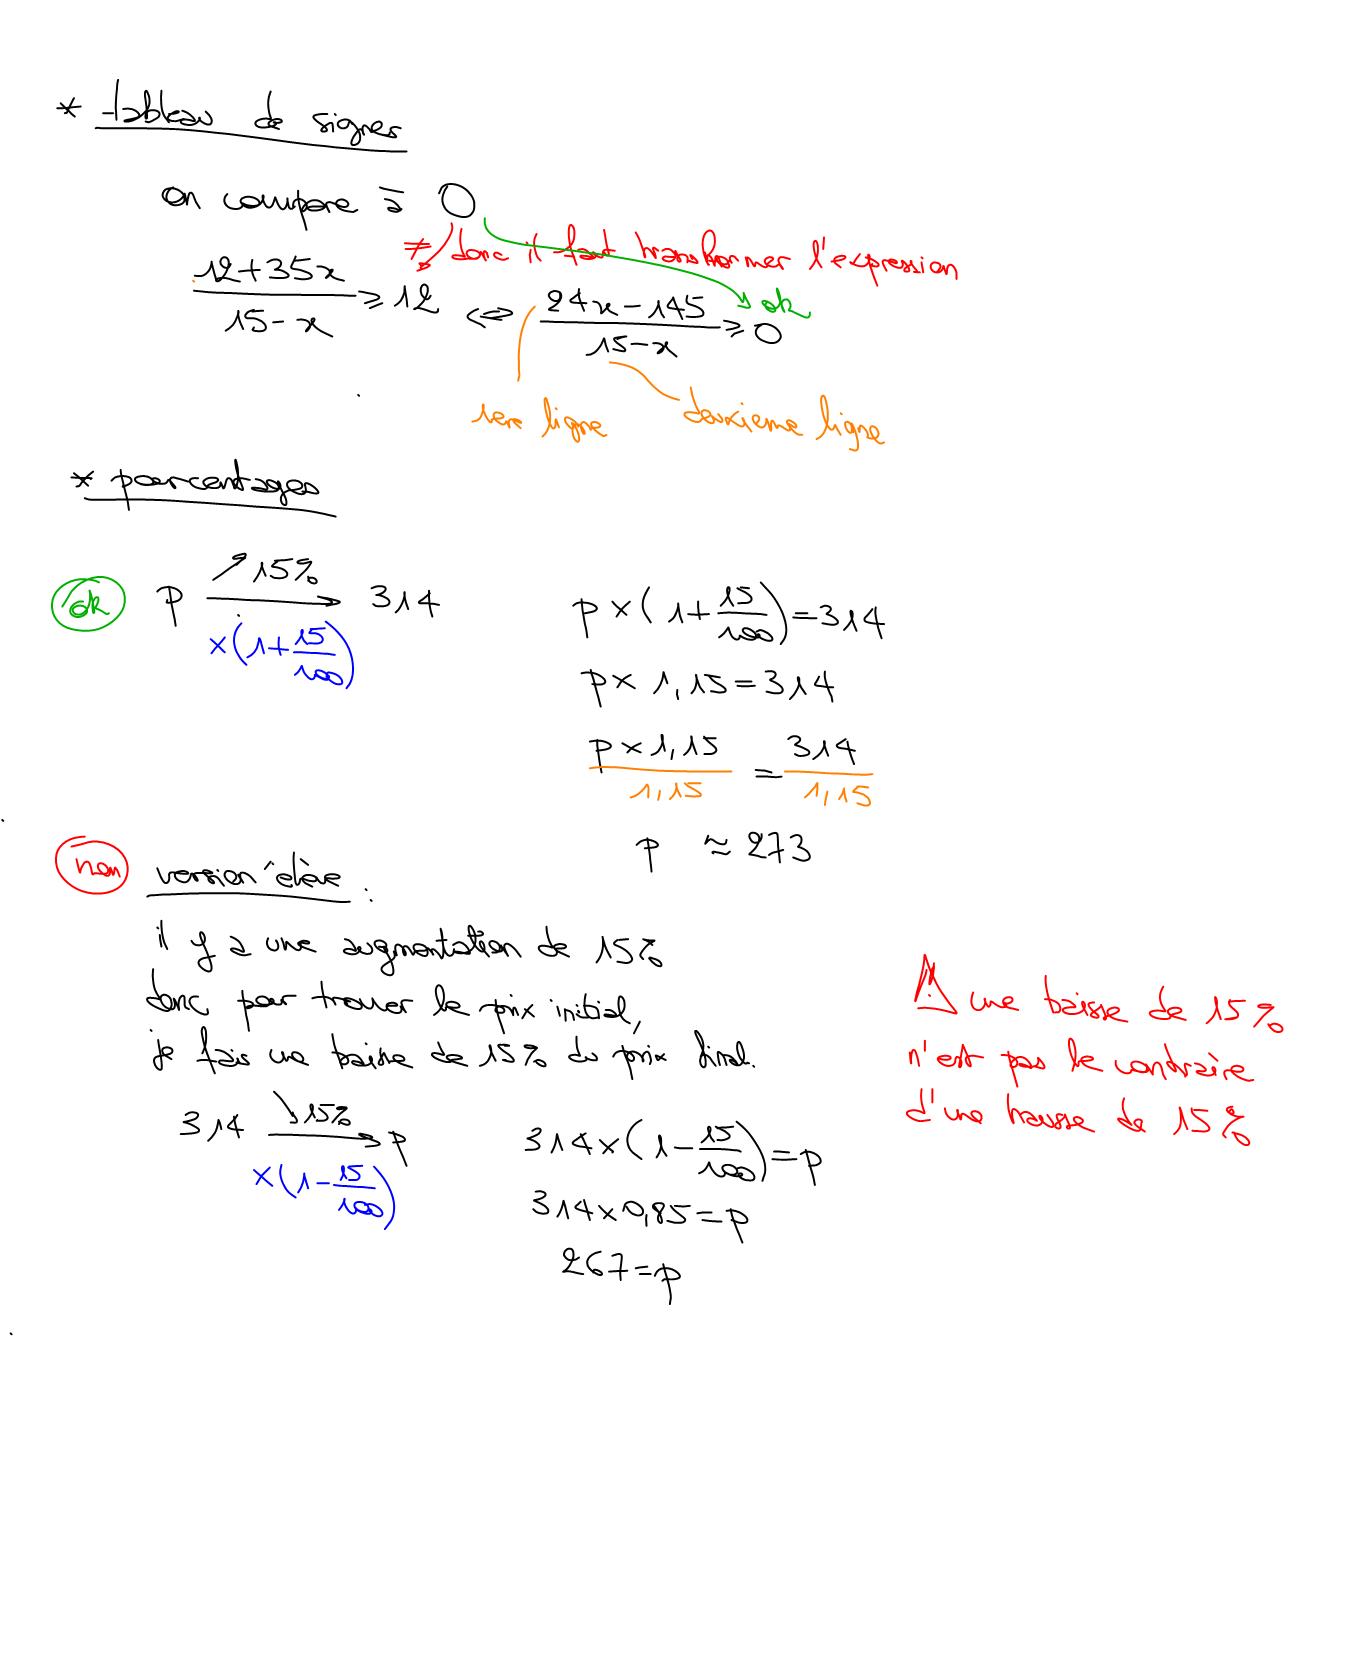 * tableau de signes
on compare à 0
≠ donc il faut transformer l'expression
(12+35x)/(15-x) ≥ 12 ⇔ (24x-145)/(15-x) ≥ 0 ok
1ere ligne deuxieme ligne
* pourcentages
ok p ↗15% → 314
×(1+15/100)
p×(1+15/100)=314
p× 1,15=314
(p×1,15)/(1,15) = 314/(1,15)
p ≈ 273
non version élève :
il y a une augmentation de 15%
donc pour trouver le prix initial,
je fais une baisse de 15% du prix final.
314 ↘15% → p
×(1-15/100)
314×(1-15/100)=p
314×0,85=p
267=p
⚠ une baisse de 15%
n'est pas le contraire
d'une hausse de 15%